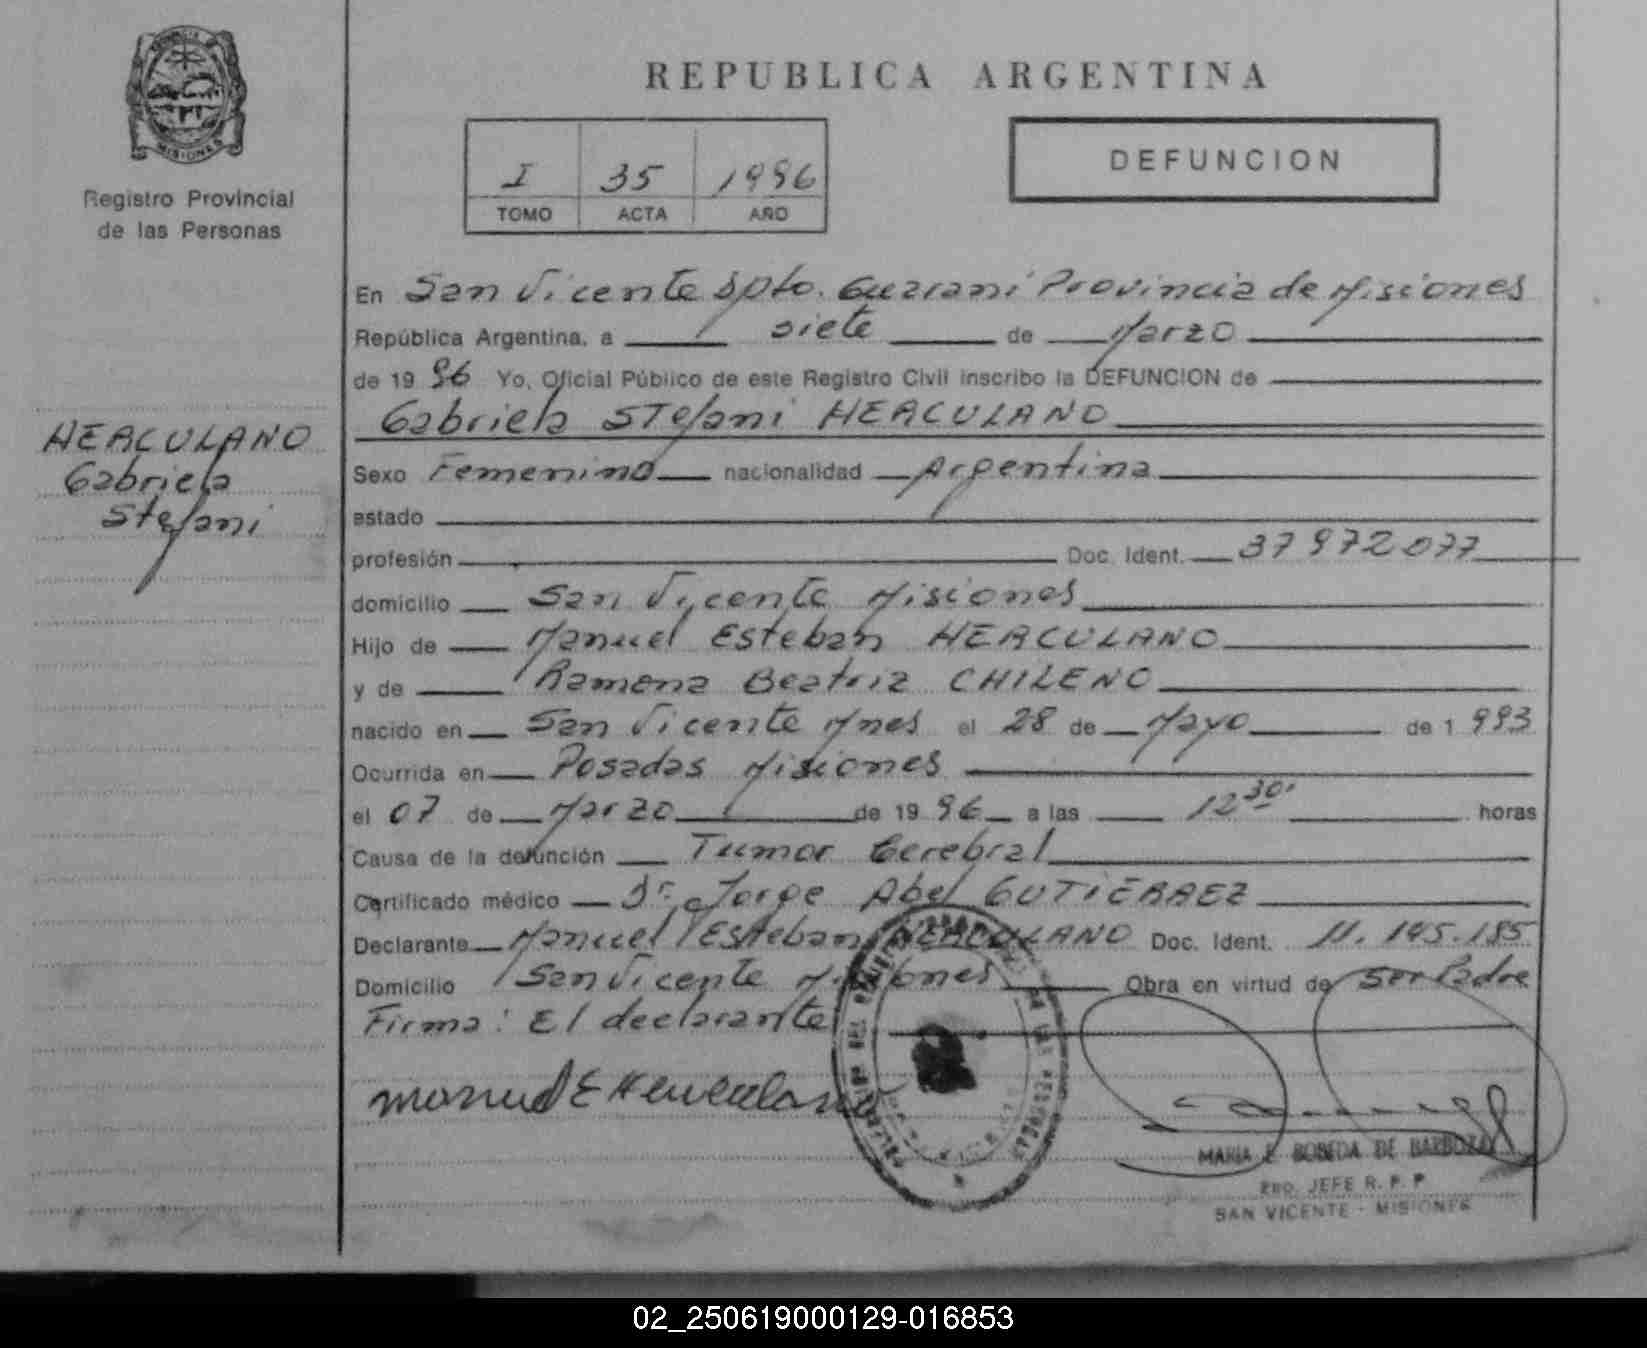 PROVINCIA DE
MISIONES
Registro Provincial
de las Personas
HERCULANO
Gabriela
Stefani
REPUBLICA ARGENTINA
I 35 1996
TOMO ACTA AÑO
DEFUNCION
En San Vicente Dpto. Guarani Provincia de Misiones
República Argentina, a siete de Marzo
de 19 96 Yo, Oficial Público de este Registro Civil inscribo la DEFUNCION de
Gabriela STefani HERCULANO
Sexo Femenino nacionalidad Argentina
estado
profesión Doc. Ident. 37972077
domicilio San Vicente Misiones
Hijo de Manuel Esteban HERCULANO
y de Ramona Beatriz CHILENO
nacido en San Vicente Mnes el 28 de Mayo de 1 993
Ocurrida en Posadas Misiones
el 07 de Marzo de 19 96 a las 12 30' horas
Causa de la defunción Tumor Cerebral
Certificado médico Dr. Jorge Abel GUTIERREZ
Declarante Manuel Esteban HERCULANO Doc. Ident. 11.145.185
Domicilio San Vicente Misiones Obra en virtud de Ser Padre
Firma: El declarante
Manuel E Herculano
MARIA E. BOBEDA DE BARBOZA
JEFE R. P. P
SAN VICENTE - MISIONES
02_250619000129-016853